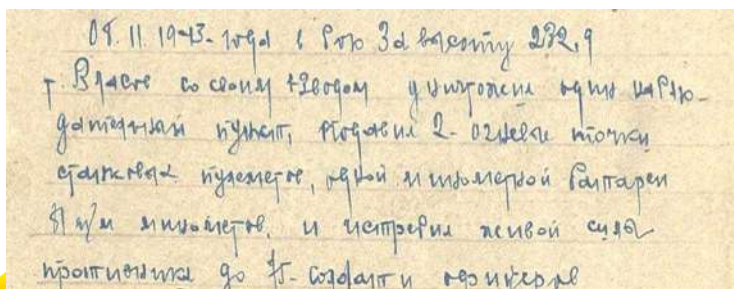 08.11.1943-года в бою за высоту 232,9
т. Власов со своим взводом уничтожил один наблю-
дательный пункт, подавил 2-огневые точки
станковых пулеметов, одной минометной баттареи
81 м/м минометов, и истребил живой силы
противника до 75-солдат и офицеров